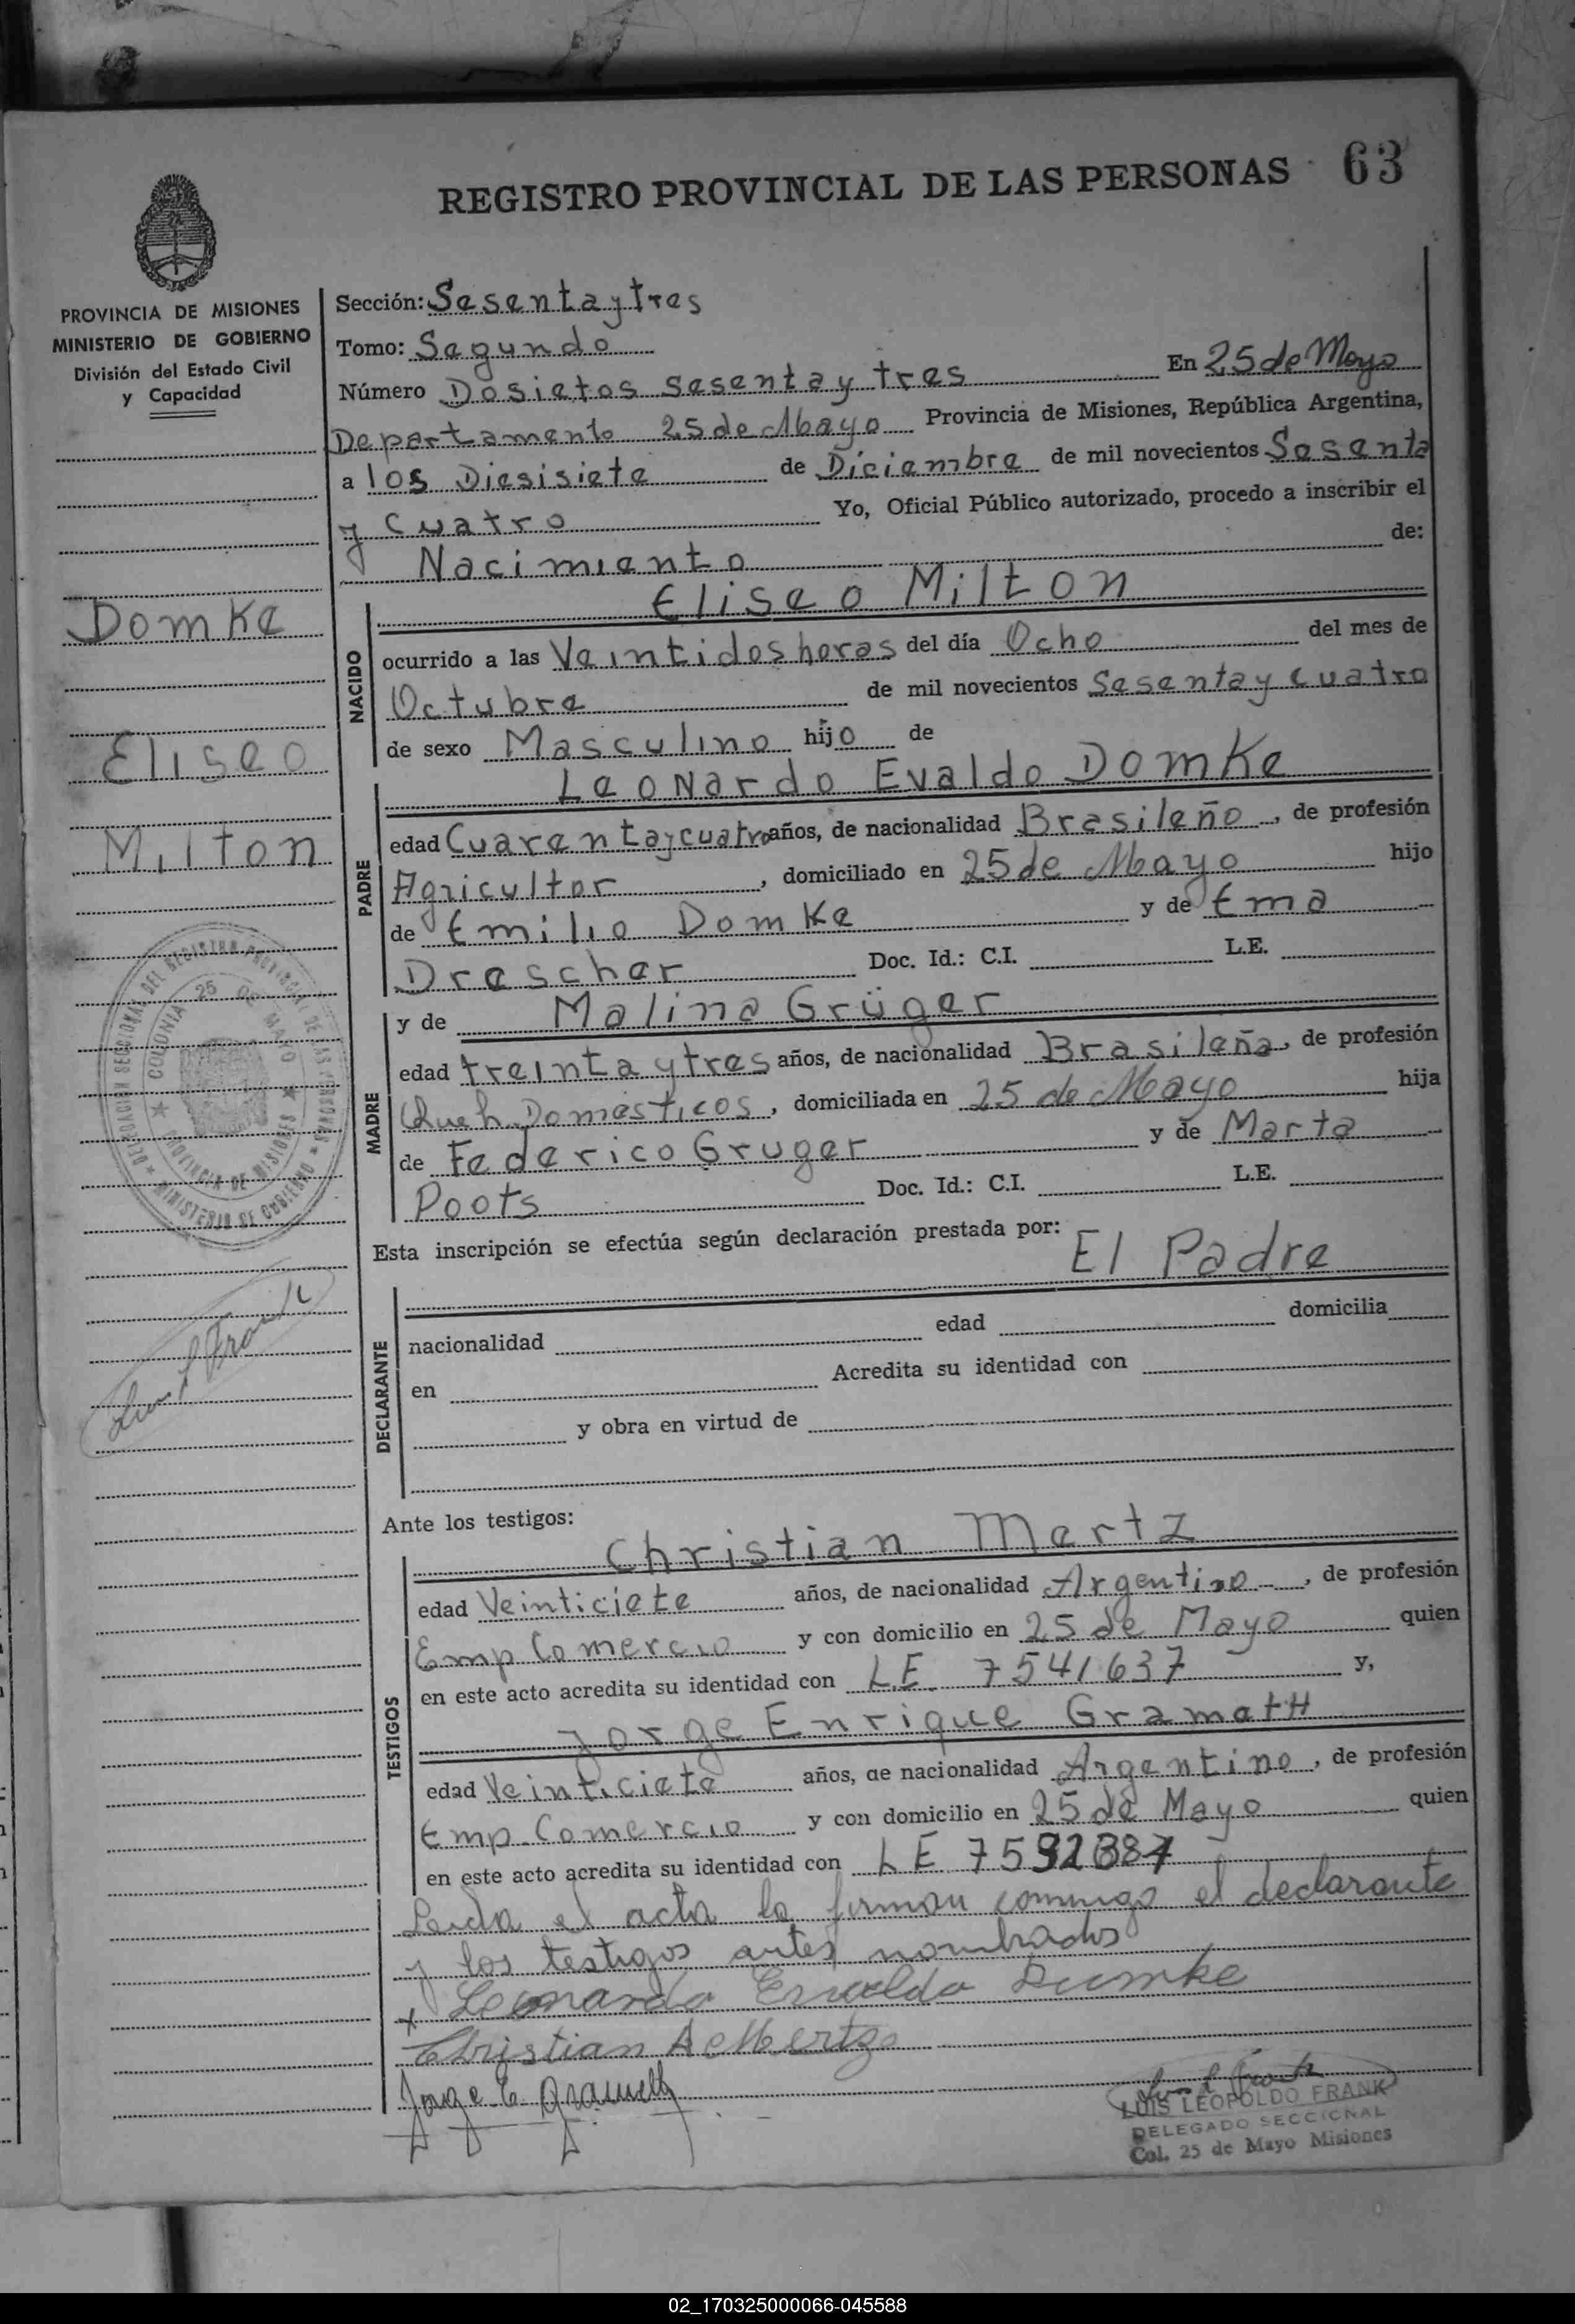 REGISTRO PROVINCIAL DE LAS PERSONAS 63
PROVINCIA DE MISIONES
MINISTERIO DE GOBIERNO
División del Estado Civil
y Capacidad
Domke
Eliseo
Milton
DELEGACION SECCIONAL DEL REGISTRO PROVINCIAL DE LAS PERSONAS ★ MINISTERIO DE GOBIERNO ★
COLONIA 25 DE MAYO ★ PROVINCIA DE MISIONES ★
Sección: Sesentaytres
Tomo: Segundo
Número Dosietos sesentay tres En 25 de Mayo
Departamento 25 de Mayo Provincia de Misiones, República Argentina,
a los Diesisiete de Diciembre de mil novecientos Sesenta
y Cuatro Yo, Oficial Público autorizado, procedo a inscribir el
Nacimiento de:
NACIDO
Eliseo Milton
ocurrido a las Veintidos horas del día Ocho del mes de
Octubre de mil novecientos Sesentay cuatro
de sexo Masculino hijo de
PADRE
Leonardo Evaldo Domke
edad Cuarentaycuatro años, de nacionalidad Brasileño, de profesión
Agricultor, domiciliado en 25 de Mayo hijo
de Emilio Domke y de Ema
Drescher Doc. Id.: C.I. L.E.
MADRE
y de Malina Grüger
edad treintaytres años, de nacionalidad Brasileña, de profesión
Queh. Domesticos, domiciliada en 25 de Mayo hija
de Federico Gruger y de Marta
Poots Doc. Id.: C.I. L.E.
Esta inscripción se efectúa según declaración prestada por: El Padre
DECLARANTE
nacionalidad edad domicilia
en Acredita su identidad con
y obra en virtud de
Ante los testigos:
TESTIGOS
Christian Mertz
edad Veinticiete años, de nacionalidad Argentino, de profesión
Emp Comercio y con domicilio en 25 de Mayo quien
en este acto acredita su identidad con L.E. 7541637 y,
Jorge Enrique Gramatt
edad Veinticiete años, de nacionalidad Argentino, de profesión
Emp. Comercio y con domicilio en 25 de Mayo quien
en este acto acredita su identidad con LE
Leida el acta la firman conmigo el declarante
y los testigos antes nombrados
x Leonardo Domke
Christian Mertz
Jorge E.
LUIS LEOPOLDO FRANK
DELEGADO SECCIONAL
Col. 25 de Mayo Misiones
02_170325000066-045588